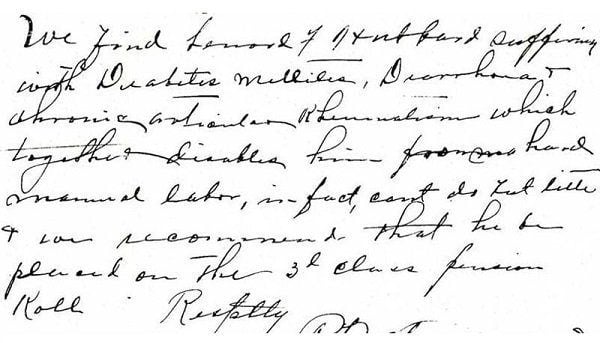 We find Lenord F Hubbard suffering
with Diabetes Mellites, Diarrhoea &
chronic articular Rheumatism which
together disables him from hard
manual labor, in fact, cant do but little
& we recommend that he be
placed on the 3d class pension
Roll. Resptly